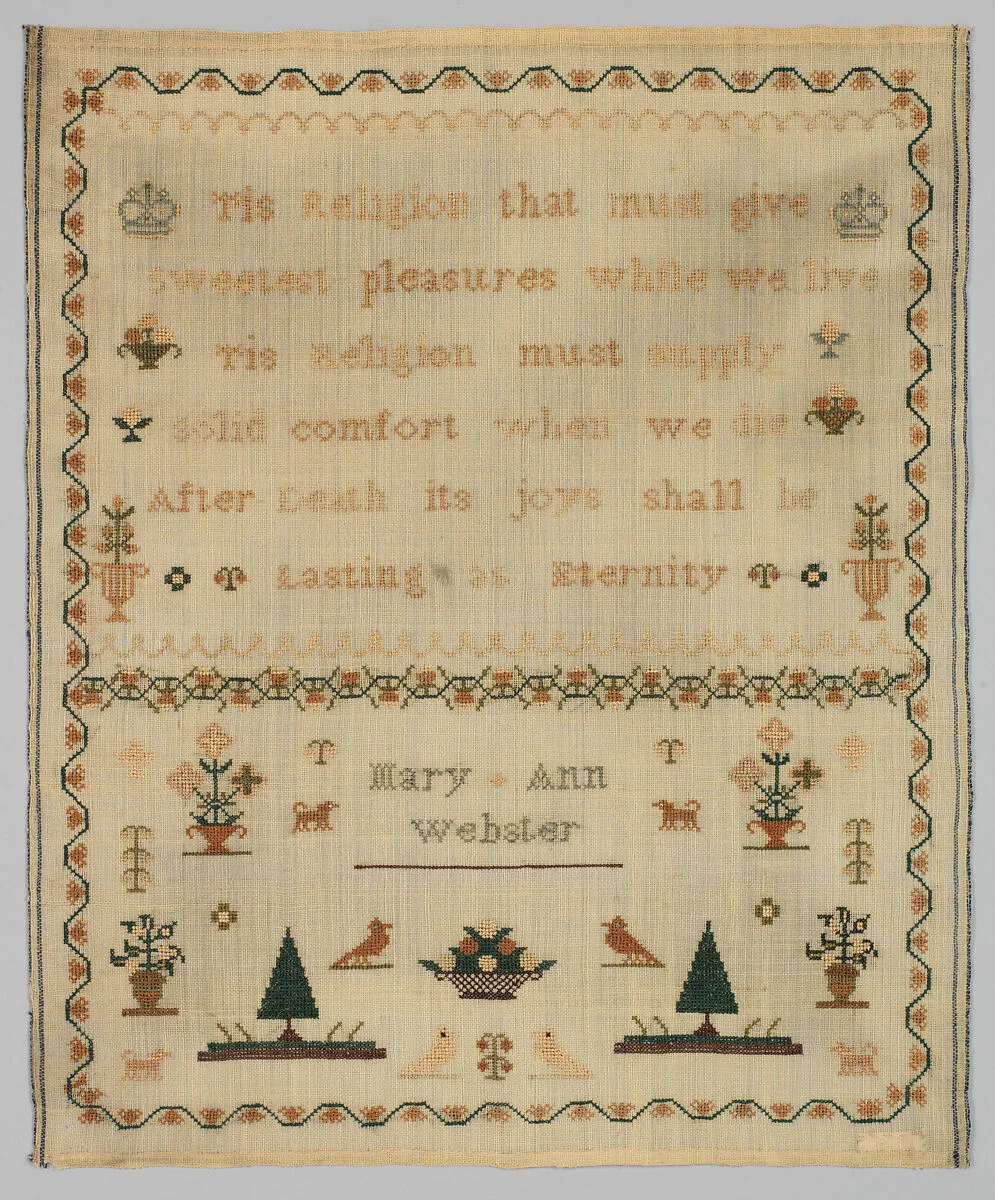 Tis Religion that must give
sweetest pleasures while we live
Tis Religion must supply
solid comfort when we die
After Death its joys shall be
Lasting as Eternity
Mary Ann
Webster